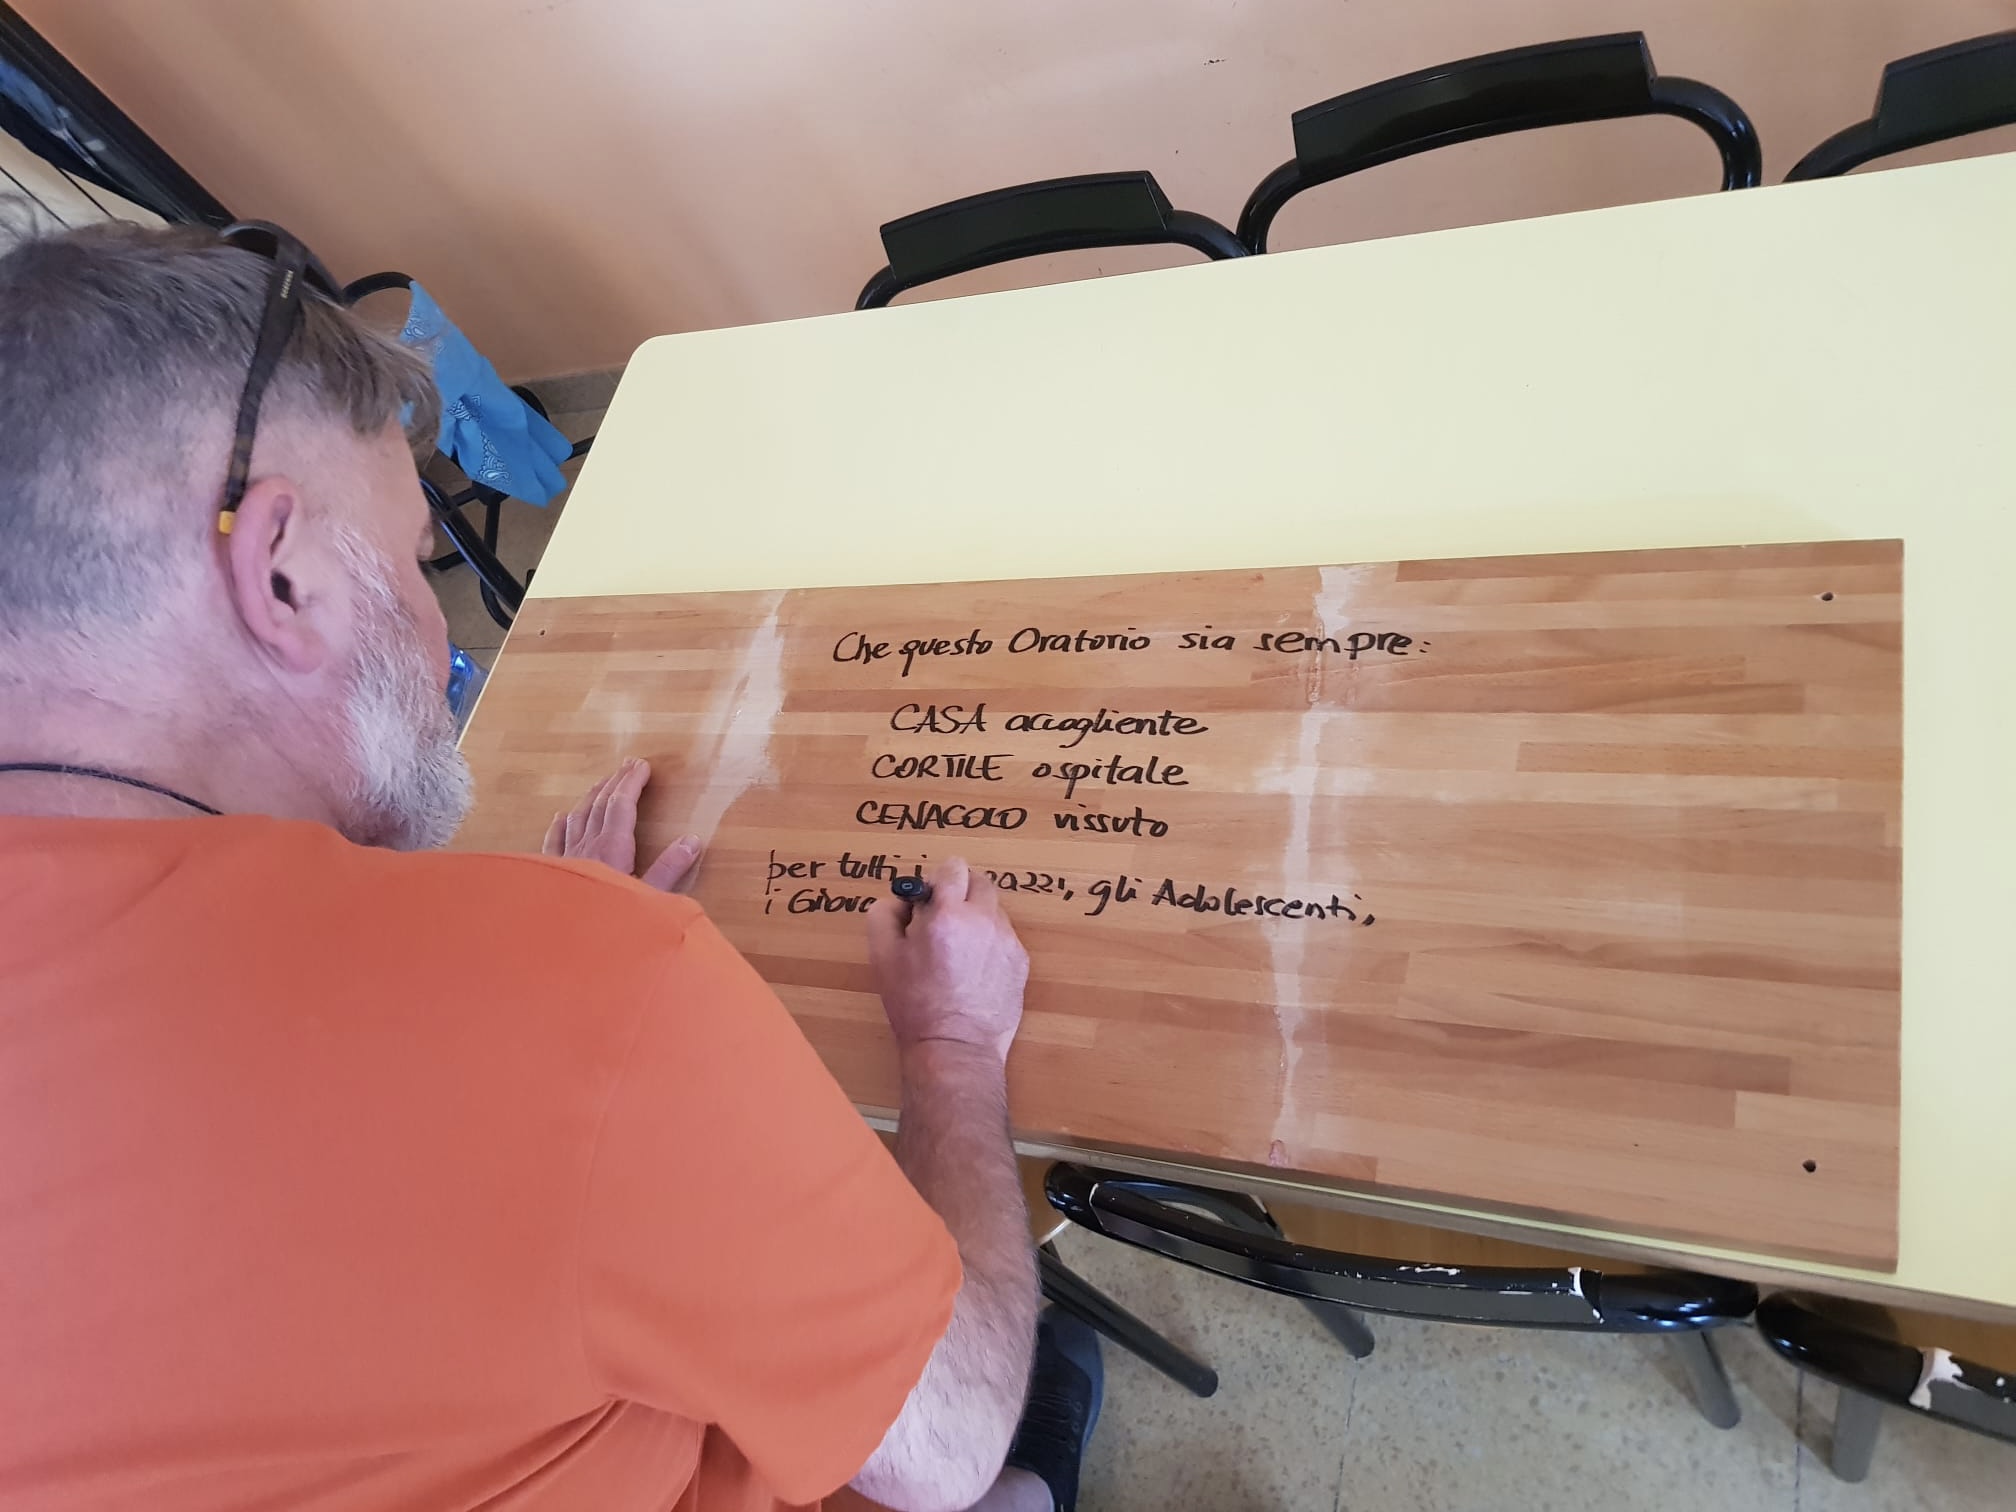 Che questo Oratorio sia sempre:
CASA accogliente
CORTILE ospitale
CENACOLO vissuto
per tutti i gli Adolescenti,
i